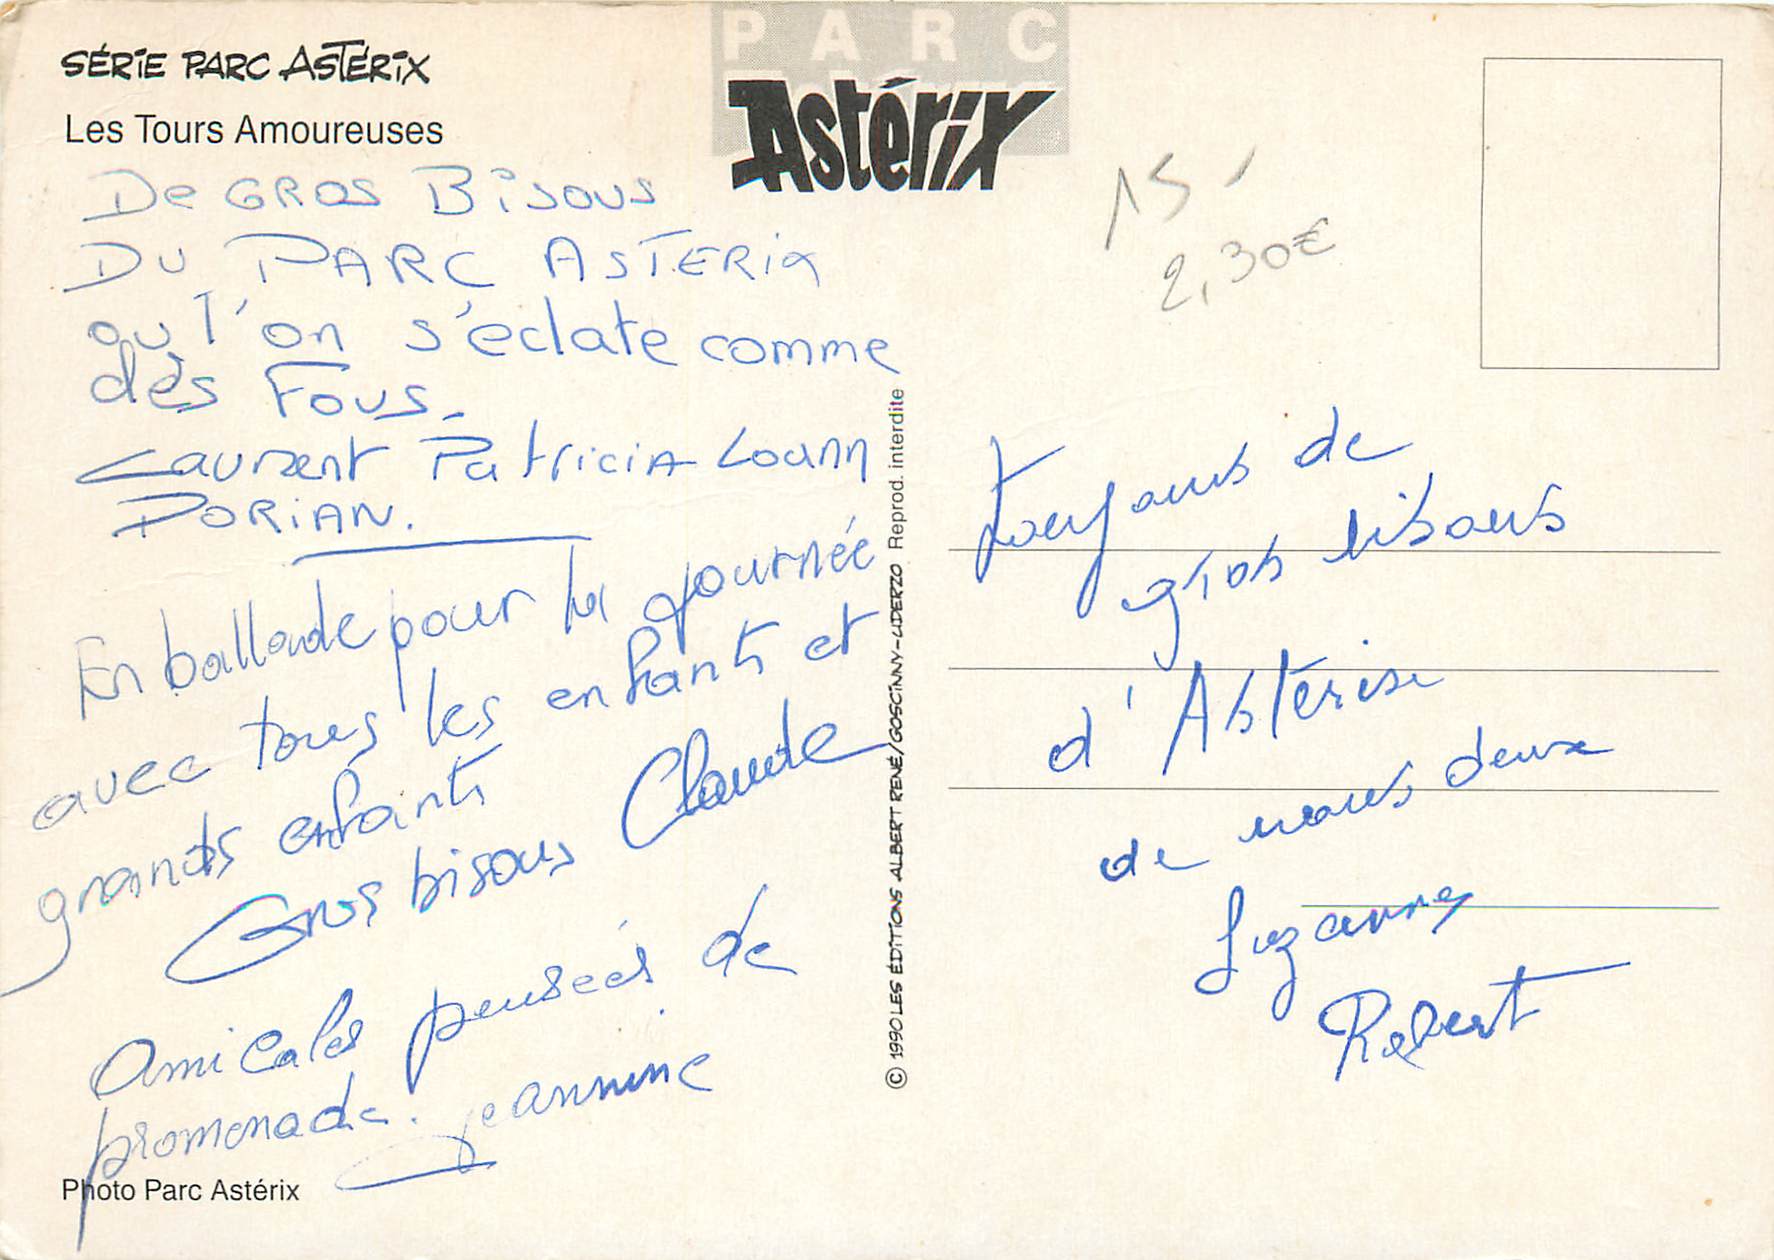 SÉRIE PARC ASTÉRIX
Les Tours Amoureuses
PARC
Astérix
De GROS BISOUS
DU PARC ASTERIX
ou l'on s'eclate comme
dès Fous.
Laurent Patricia Loann
DORIAN.
En ballade pour la journée
avec tous les enfants et
grands enfants
Gros bisous Claude
Amicales pensées de
promenade. Jeannine
Photo Parc Astérix
© 1990 LES ÉDITIONS ALBERT RENÉ/GOSCINNY-UDERZO Reprod. interdite
15 -
2,30€
Toujours de
gros bisous
d'Astérix
de nous deux
Suzanne
Robert